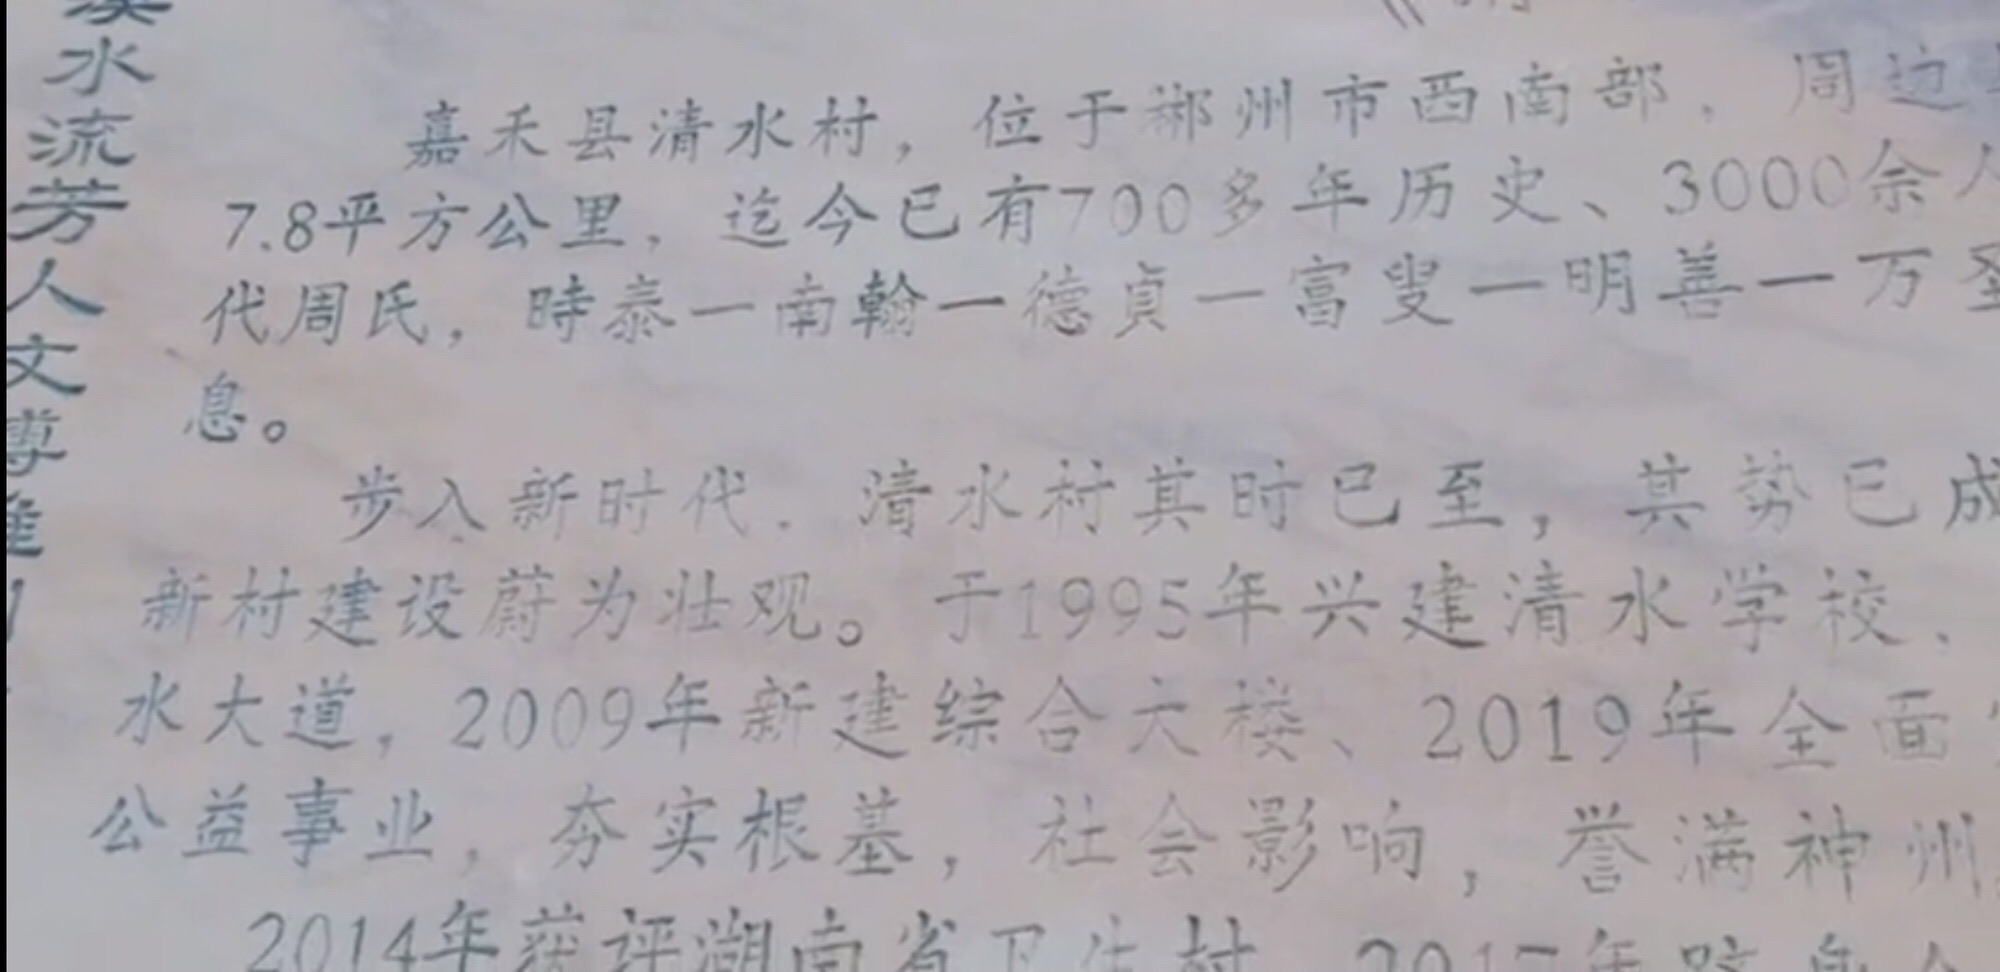 水流芳人文
嘉禾县清水村，位于郴州市西南部，周边
7.8平方公里，迄今已有700多年历史、3000余人
代周氏，時泰一南翰一德貞一富叟一明善一万
息。
步入新时代，清水村其时已至，其势已成
新村建设蔚为壮观。于1995年兴建清水学校、
水大道，2009年新建综合大楼、2019年全面
公益事业，夯实根基，社会影响，誉满神州
2014年获评湖南省卫生村